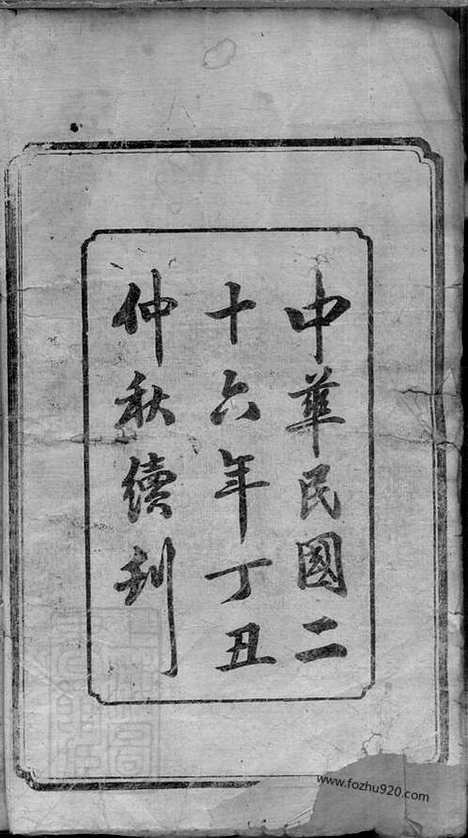 中華民國二
十六年丁丑
仲秋續刋
www.fozhu920.com